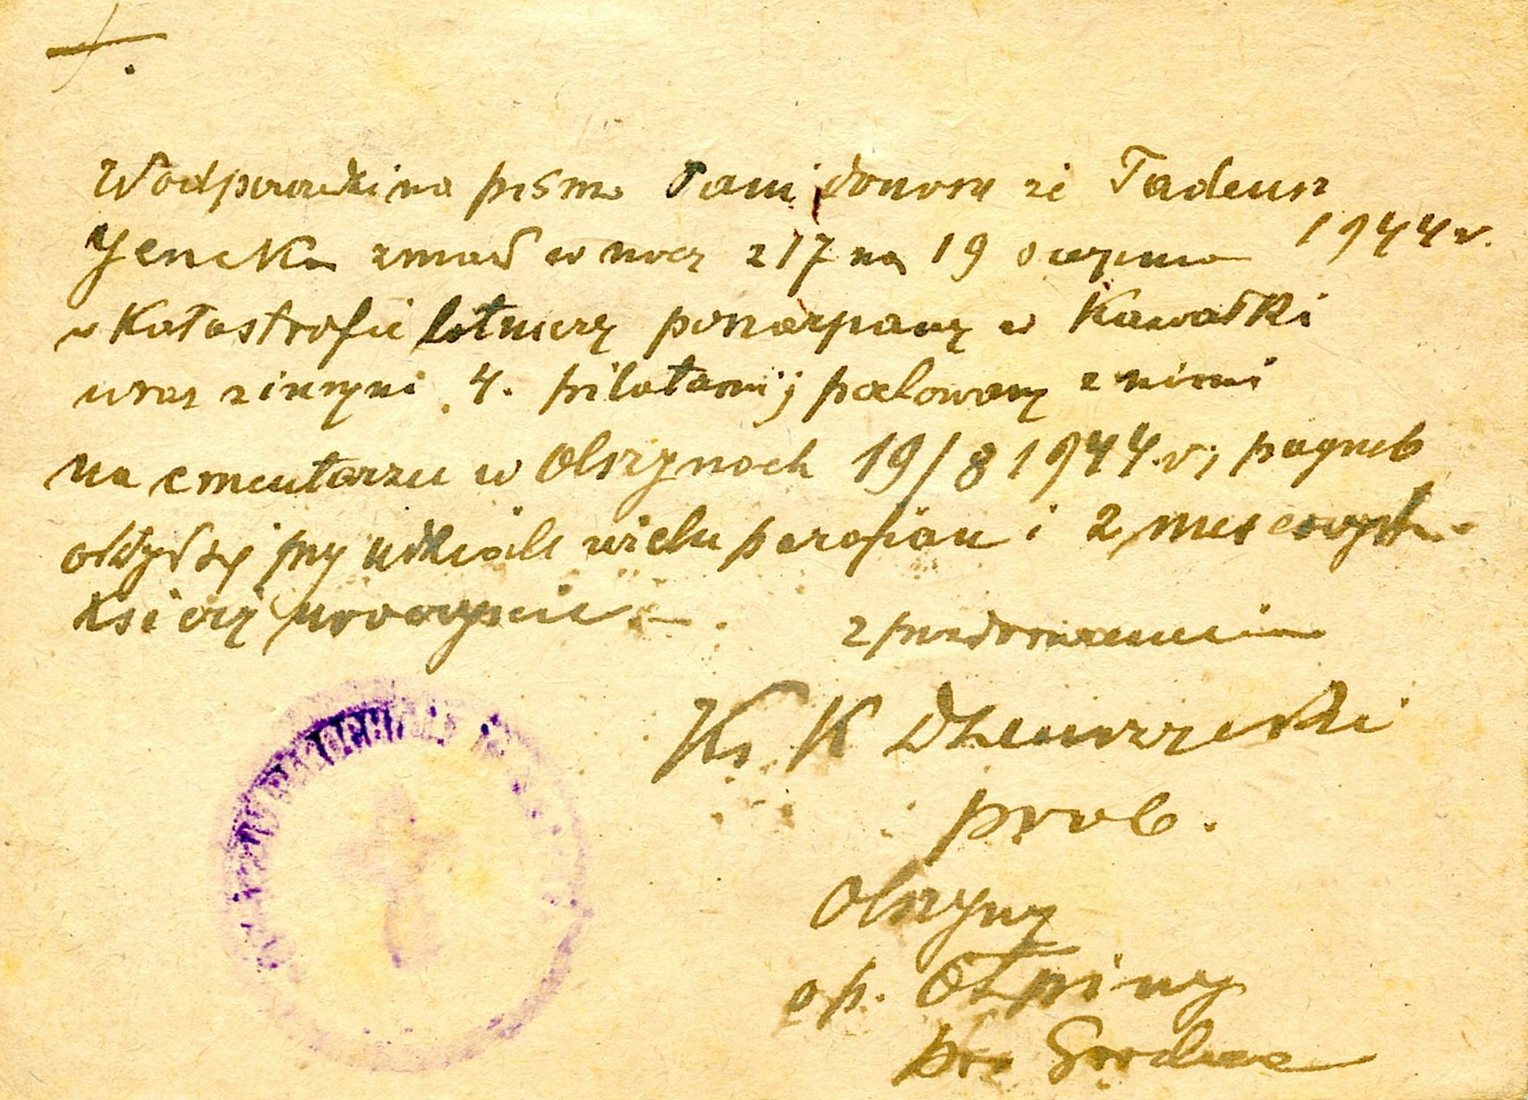 W odpowiedzi na pismo Pani donoszę że Tadeusz
Jencka zmarł w nocy z 17 na 19 sierpnia 1944 r.
w Katastrofie lotniczej poszarpany w Kawałki
wraz z innymi 4. pilotami; pochowany z nimi
na cmentarzu w Olszynach 19/8 1944 r; pogrzeb
odbył się przy udziale wielu parafian i 2 miejscowych
księży uroczyście.—
Ks K
prob.
Olszyny
op. Ołpiny